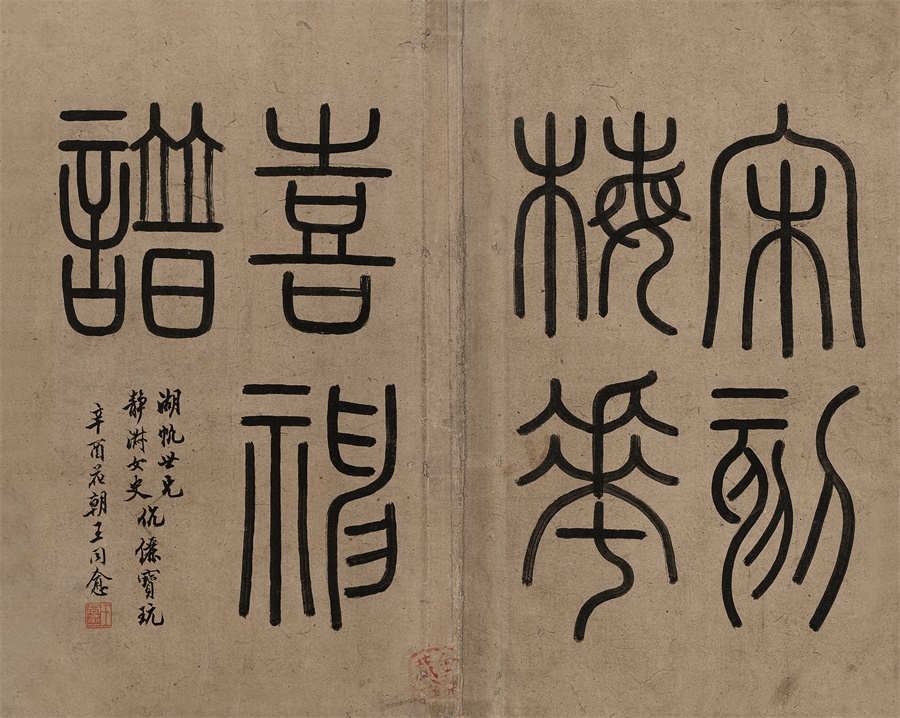 宋刻
梅花
喜神
譜
湖帆世兄
静淑女史
伉儷寶玩
辛酉花朝王同愈